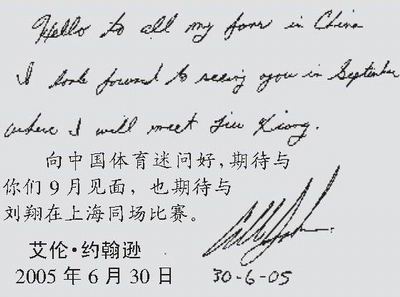 Hello to all my fans in China
I look forward to seeing you in September
where I will meet Liu Xiang.
向中国体育迷问好，期待与
你们9月见面，也期待与
刘翔在上海同场比赛。
艾伦·约翰逊
2005年6月30日
30-6-05